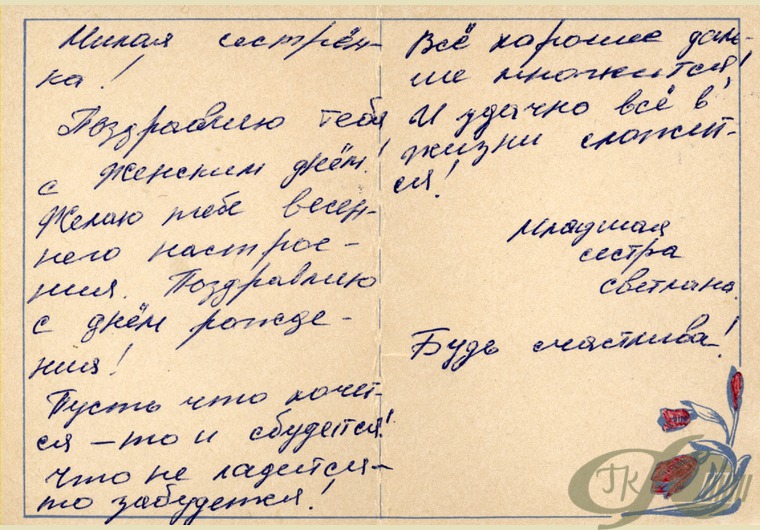 Милая сестрён-
ка!
Поздравляю тебя
с Женским днём!
Желаю тебе весен-
него настрое-
ния. Поздравляю
с днём рожде-
ния!
Пусть что хочет-
ся – то и сбудется!
Что не ладится –
то забудется!
Всё хорошее даль-
ше множится!
И удачно всё в
жизни сложит-
ся!
Младшая
сестра
Светлана.
Будь счастлива!